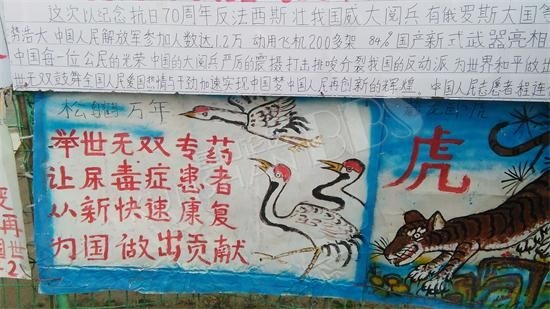 这次以纪念抗日70周年反法西斯壮我国威大阅兵有俄罗斯大国等
浩大 中国人民解放军参加人数达1.2万 动用飞机200多架 84%国产新式武器亮相
中国每一位公民的光荣 中国的大阅兵严厉的震摄打击挑唆分裂我国的反动派 为世界和平做出
世无双鼓舞全国人民爱国热情与干劲加速实现中国梦中国人民再创新的辉煌. 中国人民志愿者程连
松鹤万年
举世无双专药
让尿毒症患者
从新快速康复
为国做出贡献
虎
再
世
-2